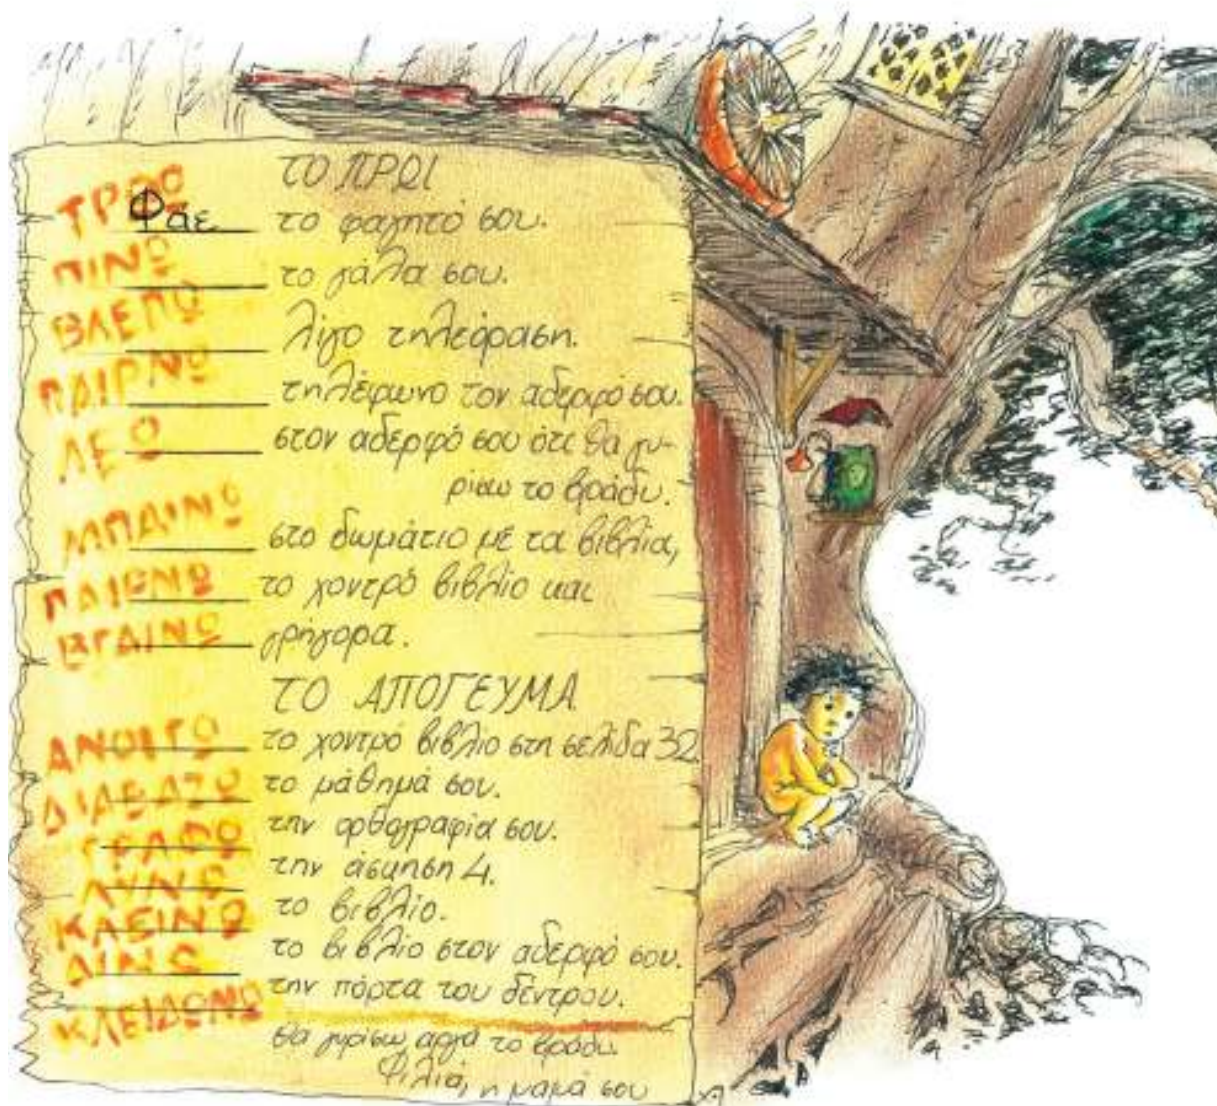 ΤΟ ΠΡΩΙ
ΤΡΩΩ Φάε το φαγητό σου.
ΠΙΝΩ το γάλα σου.
ΒΛΕΠΩ λίγο τηλεόραση.
ΠΑΙΡΝΩ τηλέφωνο τον αδερφό σου.
ΛΕΩ στον αδερφό σου ότι θα γυ-
ρίσω το βράδυ.
ΜΠΑΙΝΩ στο δωμάτιο με τα βιβλία,
ΠΑΙΡΝΩ το χοντρό βιβλίο και
ΒΓΑΙΝΩ γρήγορα.
ΤΟ ΑΠΟΓΕΥΜΑ
ΑΝΟΙΓΩ το χοντρό βιβλίο στη σελίδα 32.
ΔΙΑΒΑΖΩ το μάθημά σου.
ΓΡΑΦΩ την ορθογραφία σου.
ΛΥΝΩ την άσκηση 4.
ΚΛΕΙΝΩ το βιβλίο.
ΔΙΝΩ το βιβλίο στον αδερφό σου.
ΚΛΕΙΔΩΝΩ την πόρτα του δέντρου.
Θα γυρίσω αργά το βράδυ.
Φιλιά, η μαμά σου